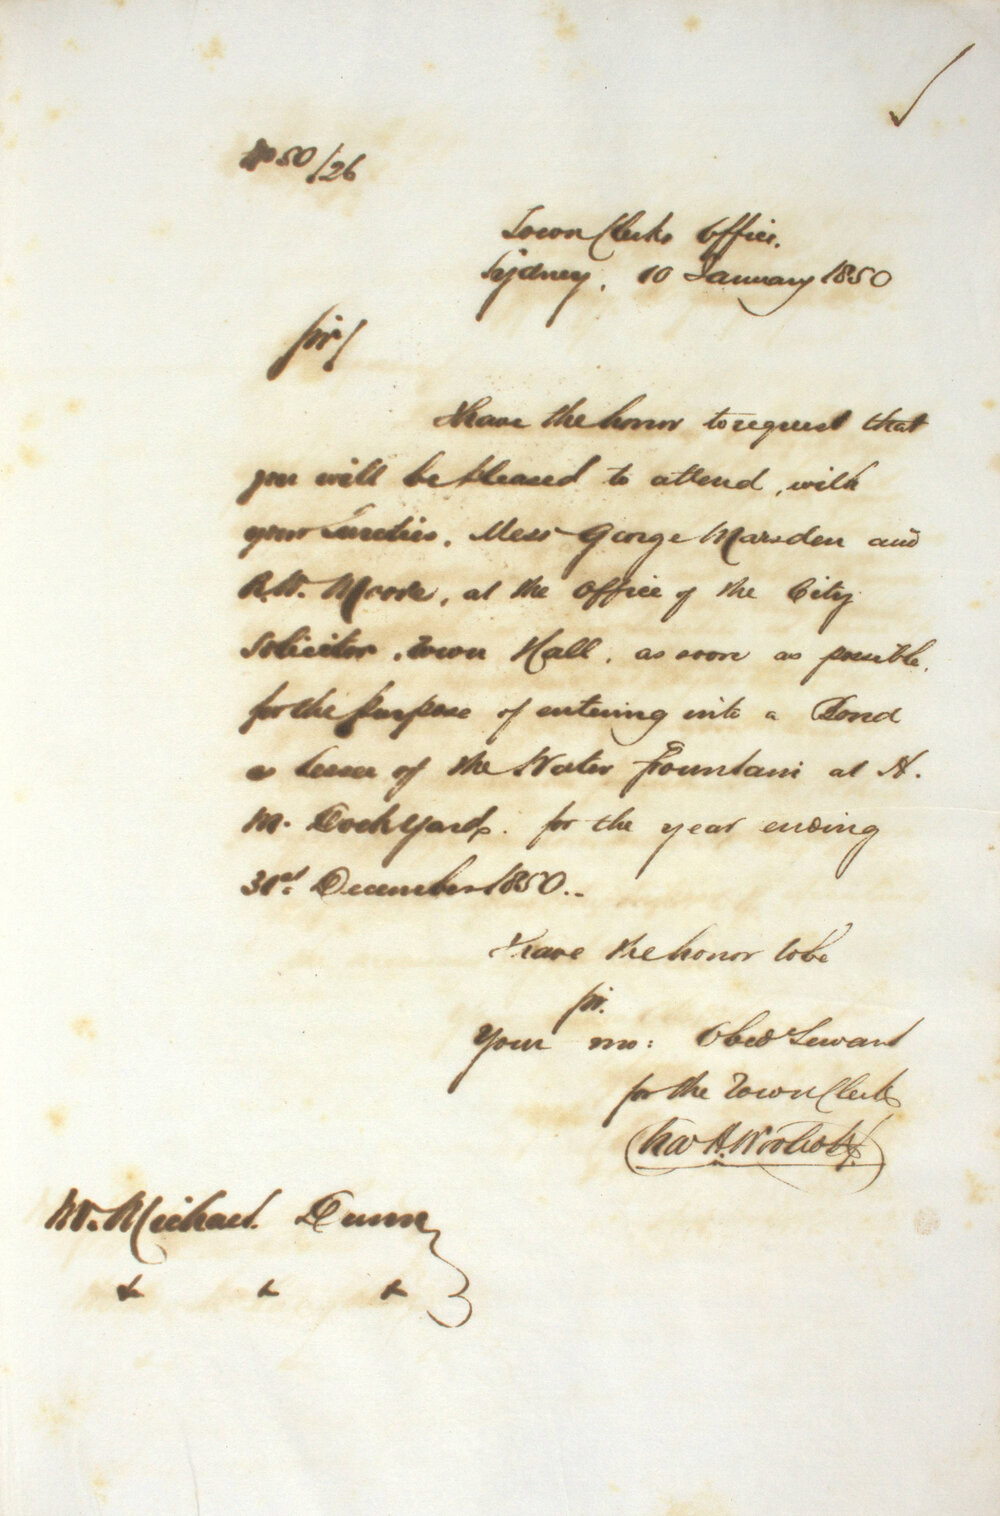 No 50/26
Town Clerks Office.
Sydney, 10 January 1850
Sir/
I have the honor to request that
you will be pleased to attend, with
your Sureties, Mess George Marsden and
R.W. Moore, at the Office of the City
Solicitor, Town Hall, as soon as possible,
for the purpose of entering into a Bond
as Lessee of the Water Fountain at H.
M. Dock Yard, for the year ending
31st December 1850.
I have the honor to be
Sir.
Your mo: Obed Servant
for the Town Clerk
Chas H. Woolcott
Mr. Michael Dunn
&c &c &c